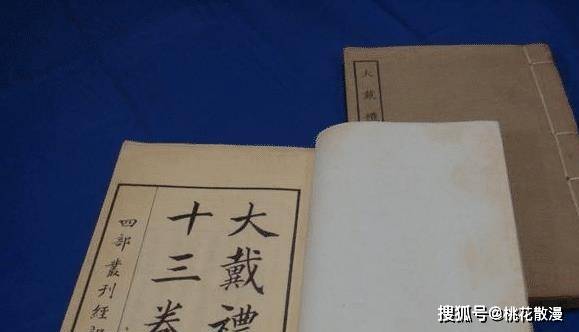 大戴禮
大戴禮
十三卷
四部叢刊經部
搜狐号@桃花散漫